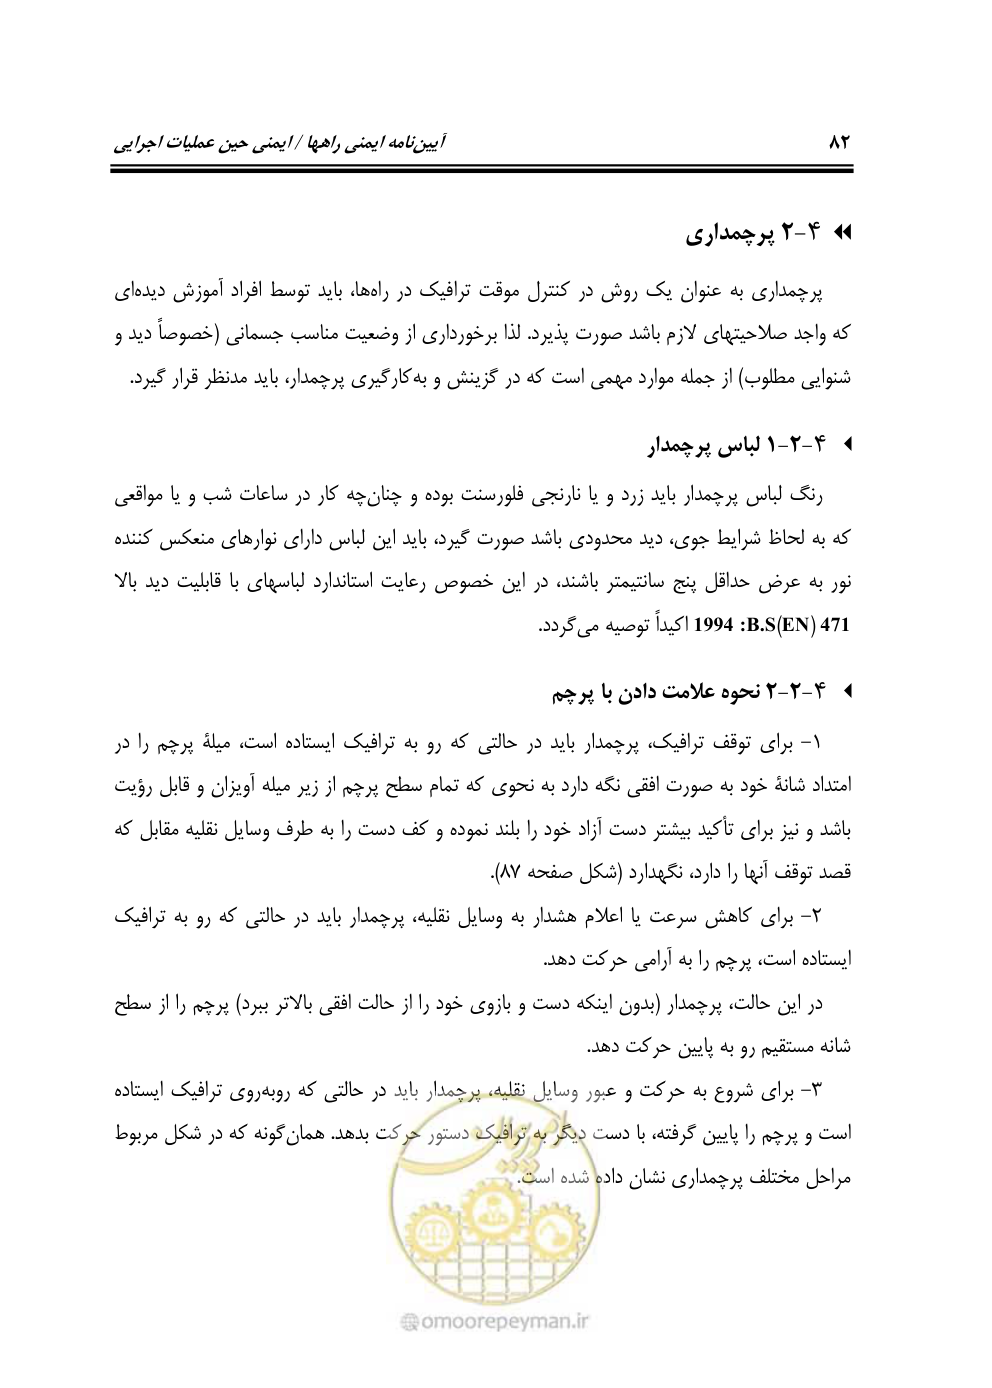 ۸۲
آیین‌نامه ایمنی راهها / ایمنی حین عملیات اجرایی
۴-۲ پرچمداری
پرچمداری به عنوان یک روش در کنترل موقت ترافیک در راه‌ها، باید توسط افراد آموزش دیده‌ای
که واجد صلاحیتهای لازم باشد صورت پذیرد. لذا برخورداری از وضعیت مناسب جسمانی (خصوصاً دید و
شنوایی مطلوب) از جمله موارد مهمی است که در گزینش و به‌کارگیری پرچمدار، باید مدنظر قرار گیرد.
۴-۲-۱ لباس پرچمدار
رنگ لباس پرچمدار باید زرد و یا نارنجی فلورسنت بوده و چنان‌چه کار در ساعات شب و یا مواقعی
که به لحاظ شرایط جوی، دید محدودی باشد صورت گیرد، باید این لباس دارای نوارهای منعکس کننده
نور به عرض حداقل پنج سانتیمتر باشند، در این خصوص رعایت استاندارد لباسهای با قابلیت دید بالا
1994 :B.S(EN) 471 اکیداً توصیه می‌گردد.
۴-۲-۲ نحوه علامت دادن با پرچم
۱- برای توقف ترافیک، پرچمدار باید در حالتی که رو به ترافیک ایستاده است، میلهٔ پرچم را در
امتداد شانهٔ خود به صورت افقی نگه دارد به نحوی که تمام سطح پرچم از زیر میله آویزان و قابل رؤیت
باشد و نیز برای تأکید بیشتر دست آزاد خود را بلند نموده و کف دست را به طرف وسایل نقلیه مقابل که
قصد توقف آنها را دارد، نگهدارد (شکل صفحه ۸۷).
۲- برای کاهش سرعت یا اعلام هشدار به وسایل نقلیه، پرچمدار باید در حالتی که رو به ترافیک
ایستاده است، پرچم را به آرامی حرکت دهد.
در این حالت، پرچمدار (بدون اینکه دست و بازوی خود را از حالت افقی بالاتر ببرد) پرچم را از سطح
شانه مستقیم رو به پایین حرکت دهد.
۳- برای شروع به حرکت و عبور وسایل نقلیه، پرچمدار باید در حالتی که روبه‌روی ترافیک ایستاده
است و پرچم را پایین گرفته، با دست دیگر به ترافیک دستور حرکت بدهد. همان‌گونه که در شکل مربوط
مراحل مختلف پرچمداری نشان داده شده است.
امور پیمان
@omoorepeyman.ir